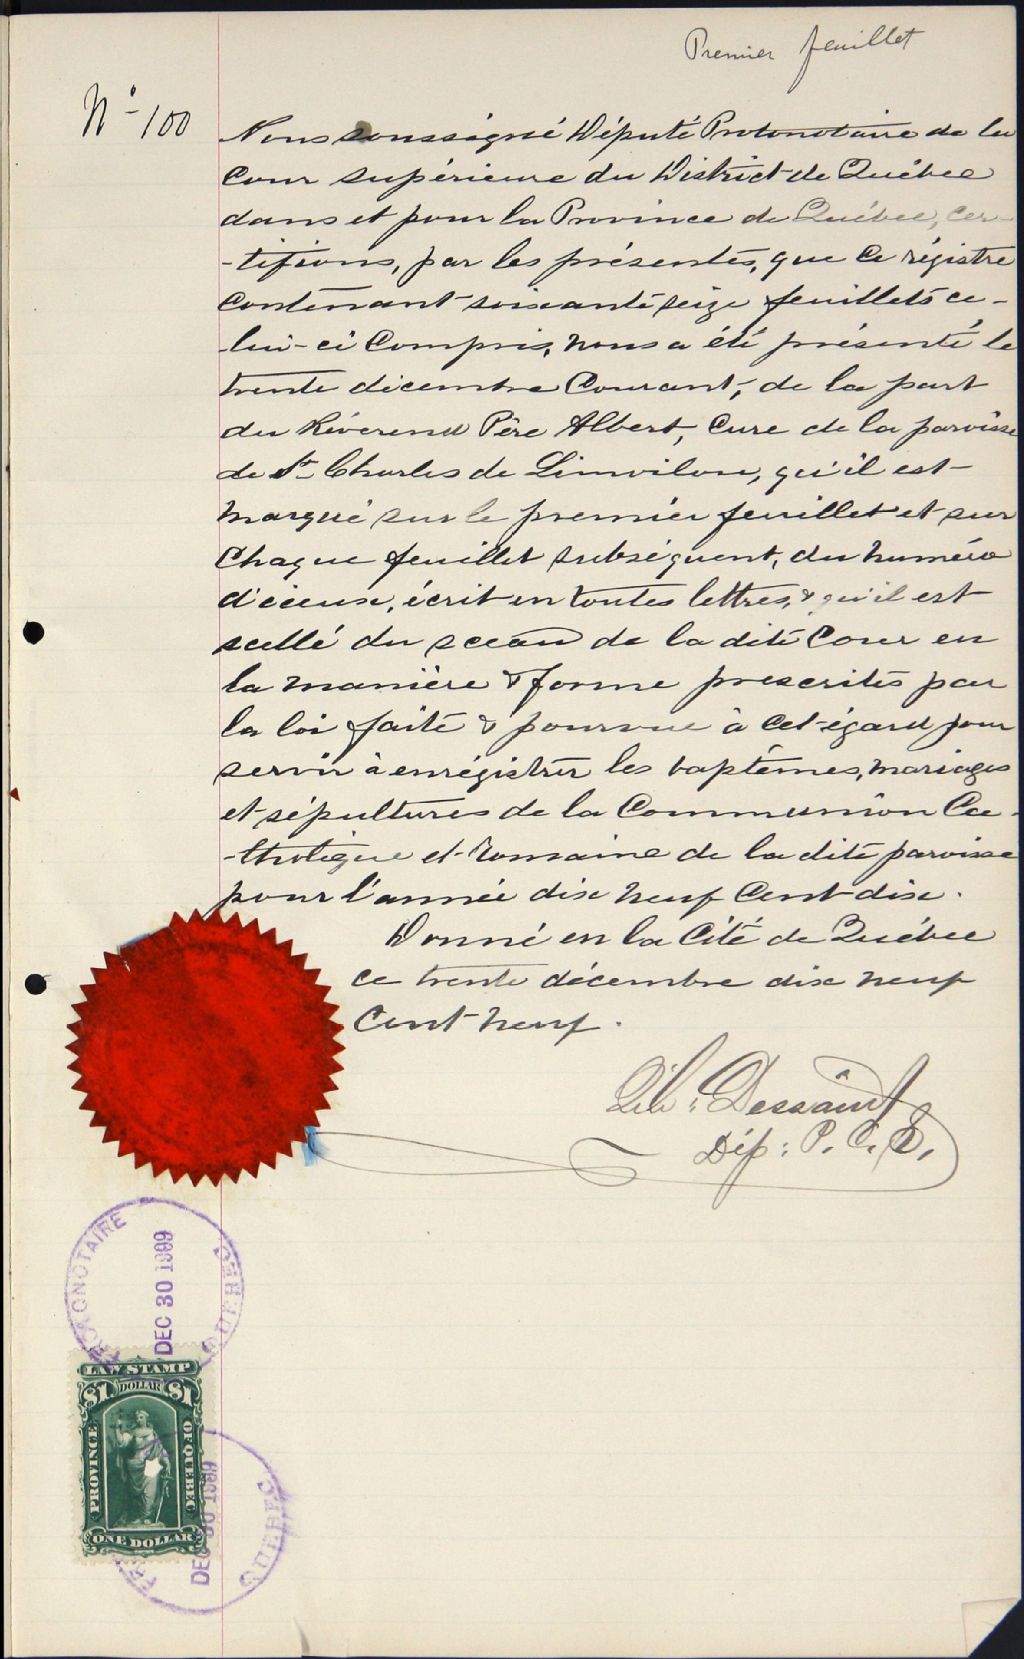 Premier feuillet
No 100
Nous soussigné Député Protonotaire de la
Cour supérieure du District de Québec
dans et pour la Province de Québec, cer-
-tifions, par les présentes, que ce régistre
contenant soixante seize feuillets ce-
-lui-ci compris, nous a été présenté le
trente décembre courant, de la part
du Révérend Père Albert, Curé de la paroisse
de St Charles de Limoilou, qu'il est
marqué sur le premier feuillet et sur
chaque feuillet subséquent, du numéro
d'iceux, écrit en toutes lettres, & qu'il est
scellé du sceau de la dite Cour en
la manière & forme prescrites par
la loi faite & pourvue à cet égard pour
servir à enrégistrer les baptêmes, mariages
et sépultures de la Communion Ca-
-tholique et Romaine de la dite paroisse
pour l'année dix neuf cent dix.
Donné en la Cité de Québec
ce trente décembre dix neuf
cent neuf.
Dessaint
Dép: P. C. S.
PROTONOTAIRE QUEBEC
DEC 30 1909
LAW STAMP
$1 DOLLAR $1
PROVINCE OF QUEBEC
ONE DOLLAR
DEC 30 1909
QUEBEC